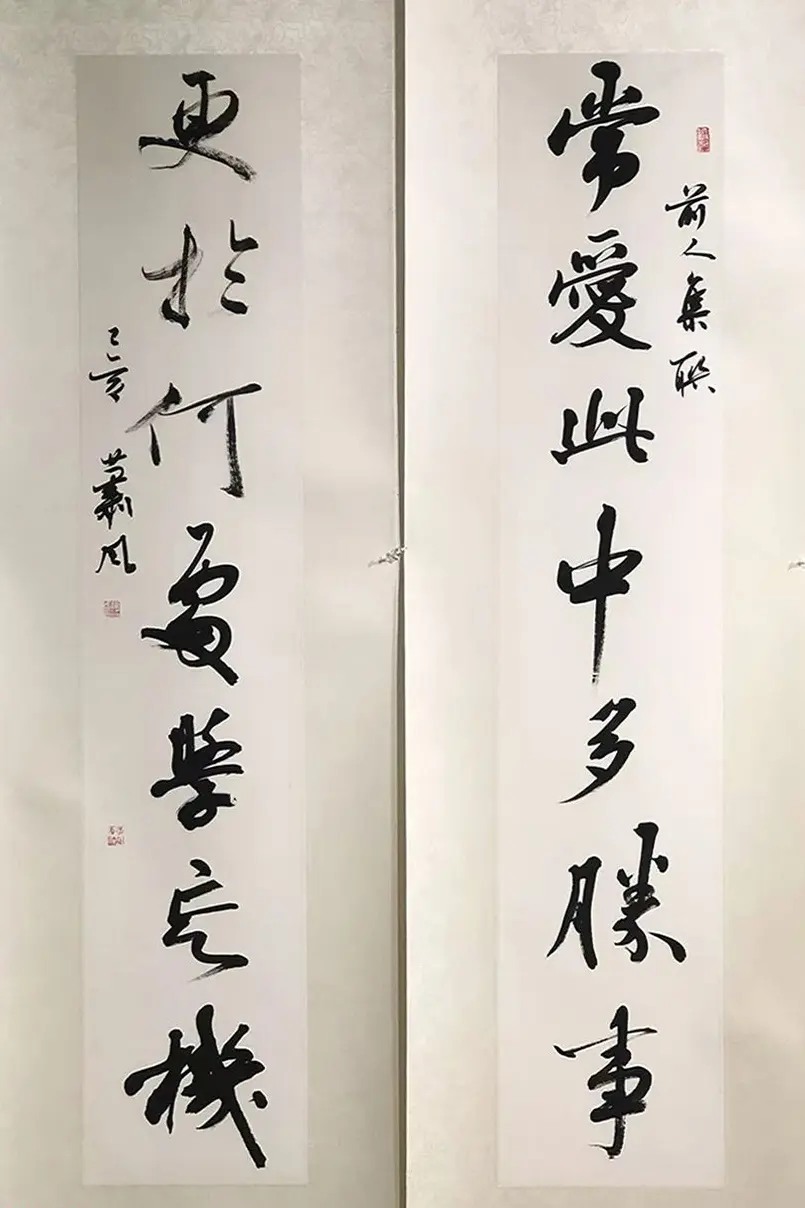 前人集联
常愛此中多勝事
更於何處學忘機
己亥 蕭風